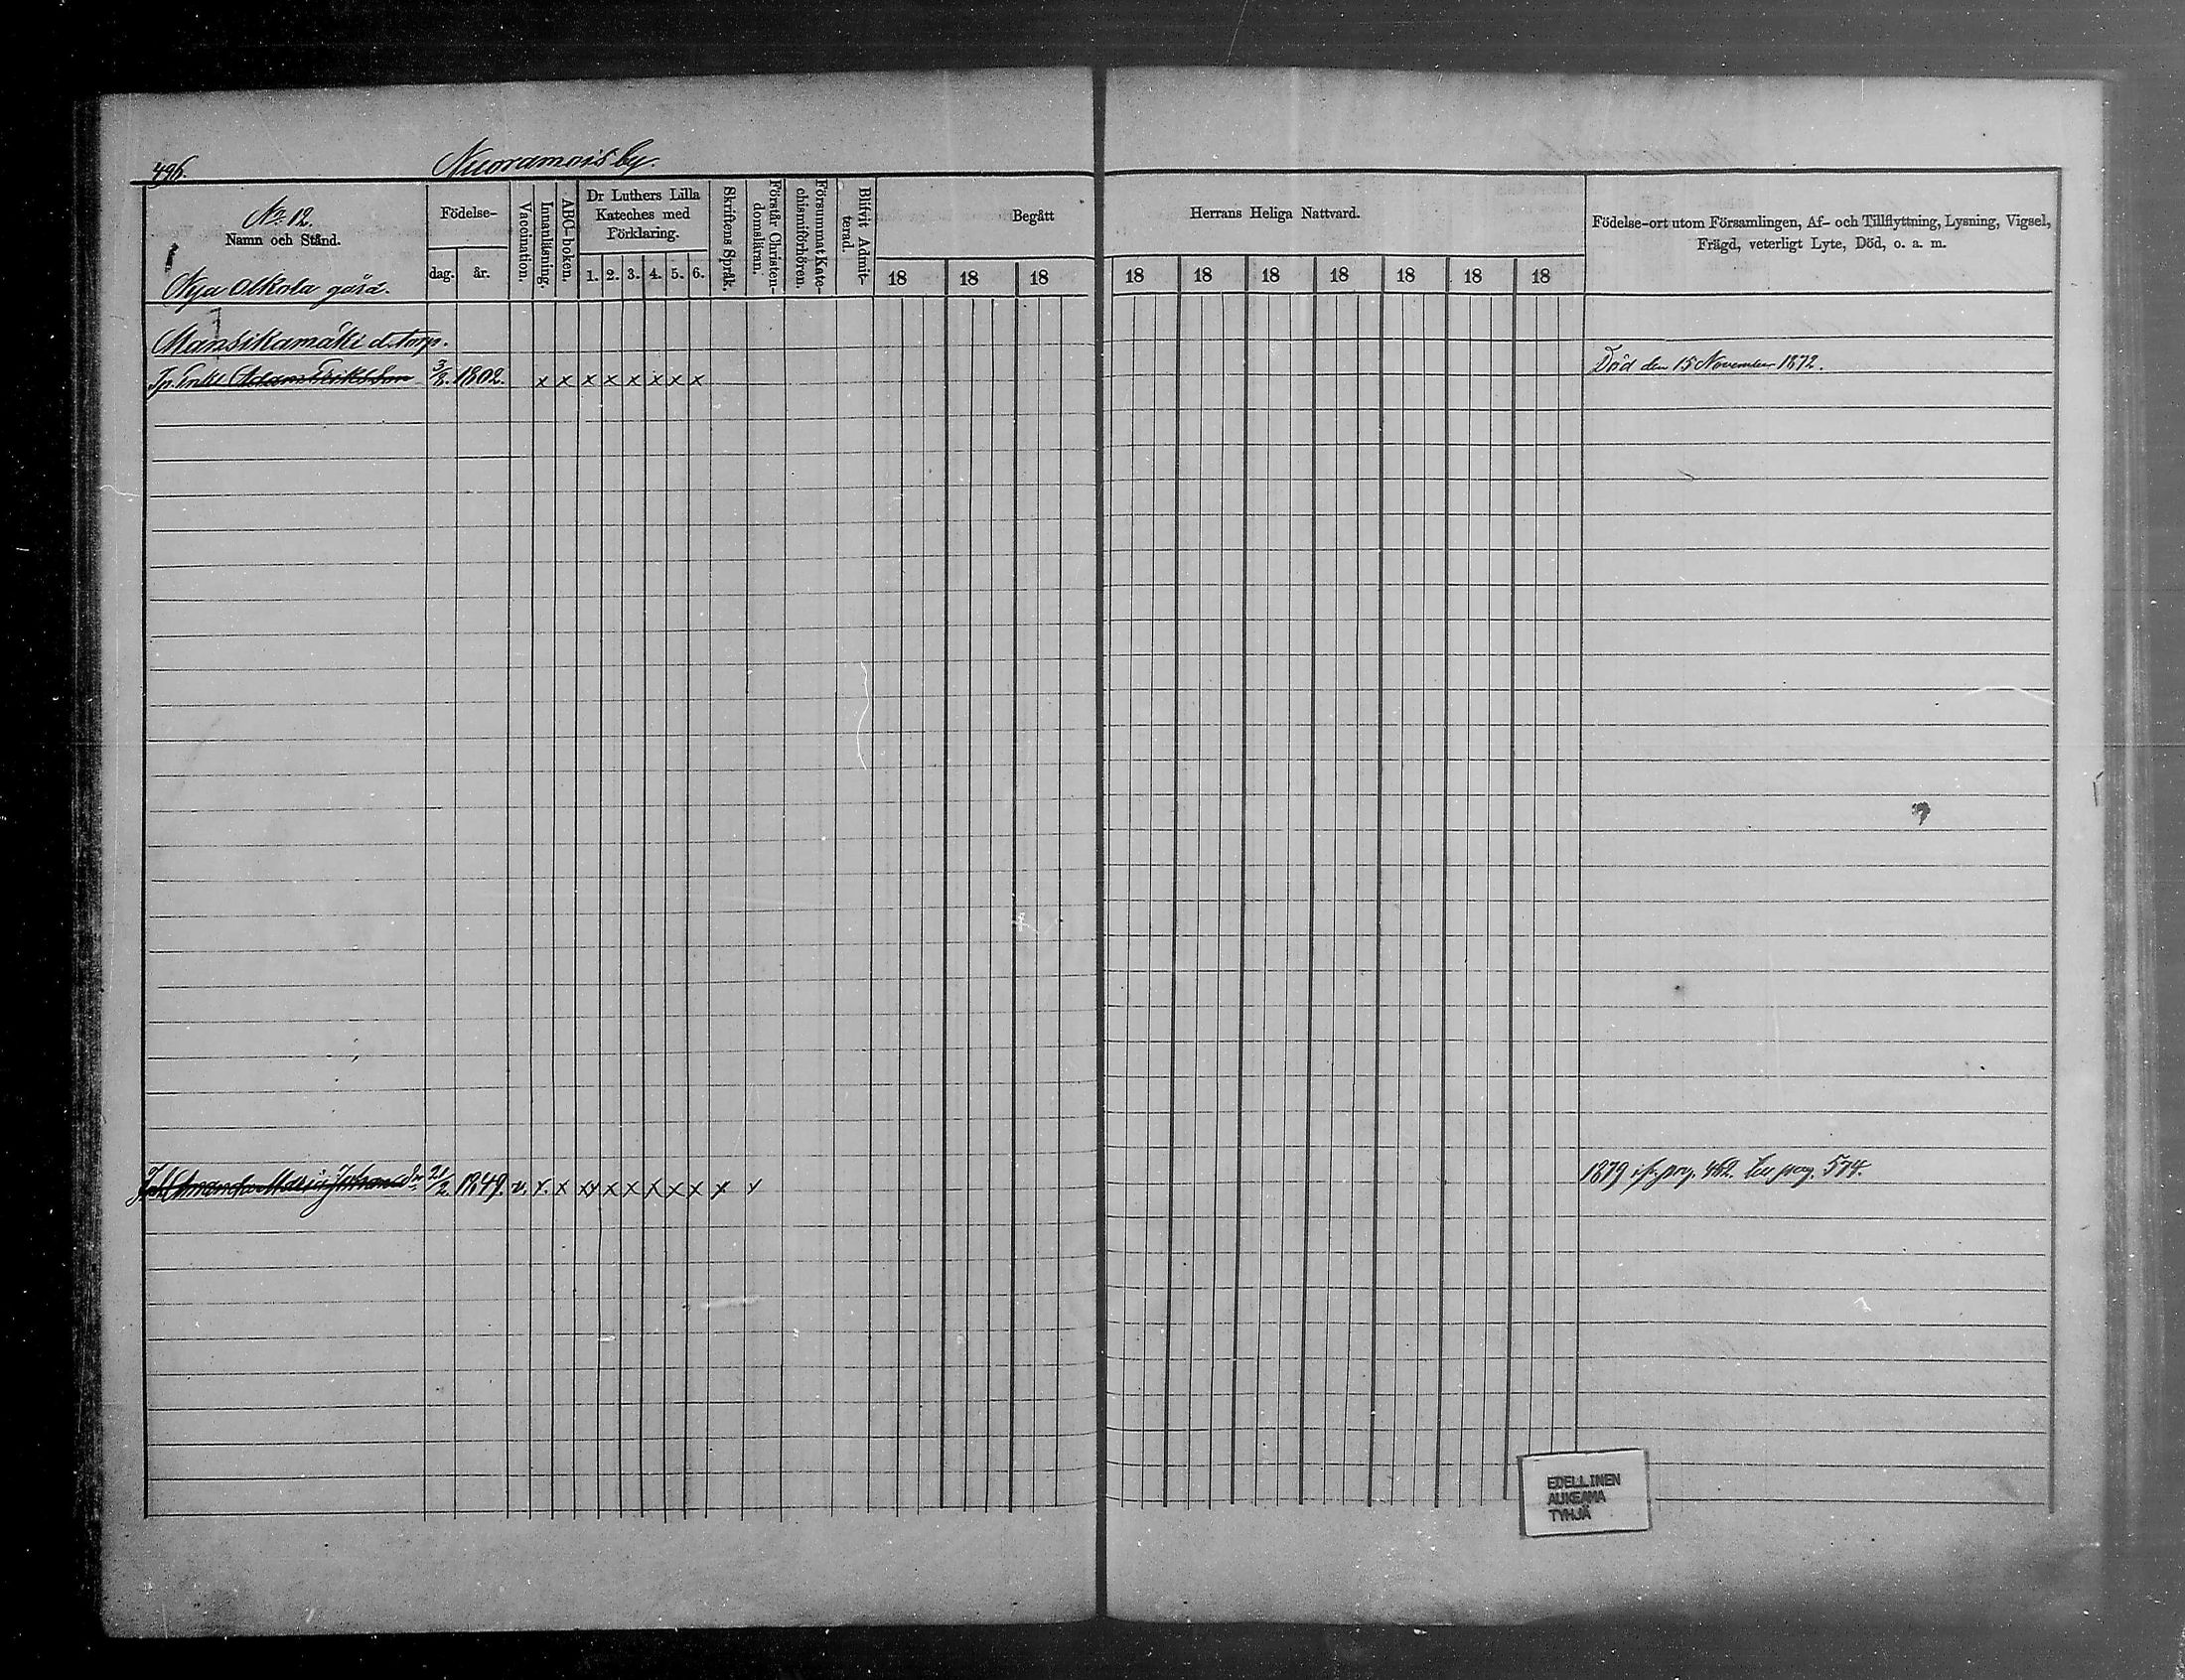 496.
Nuoramois by.
No 12.
Namn och Stånd.
Nya Alkola gård.
Födelse-
dag.
år.
Vaccination.
Innanläsning.
ABC-boken.
Dr Luthers Lilla
Kateches med
Förklaring.
1. 2. 3. 4. 5. 6.
Skriftens Språk.
Förstår Christen-
domsläran.
Försummat Kate-
chismiförhören.
Blifvit Admit-
terad.
Begått
18 18 18
Herrans Heliga Nattvard.
18 18 18 18 18 18 18
Födelse-ort utom Församlingen, Af- och Tillflyttning, Lysning, Vigsel,
Frägd, veterligt Lyte, Död, o. a. m.
Mansikamäki d. torp.
Tp. Enkl Adam Eriksson 3/8. 1802. x x x x x x x x Död den 15 November 1872.
Amanda Maria Johansdr 21/2. 1849. v. x. x x x x x x x x x 1879 ifr. pag. 462. bor pag. 574.
EDELLINEN
AUKEAMA
TYHJÄ